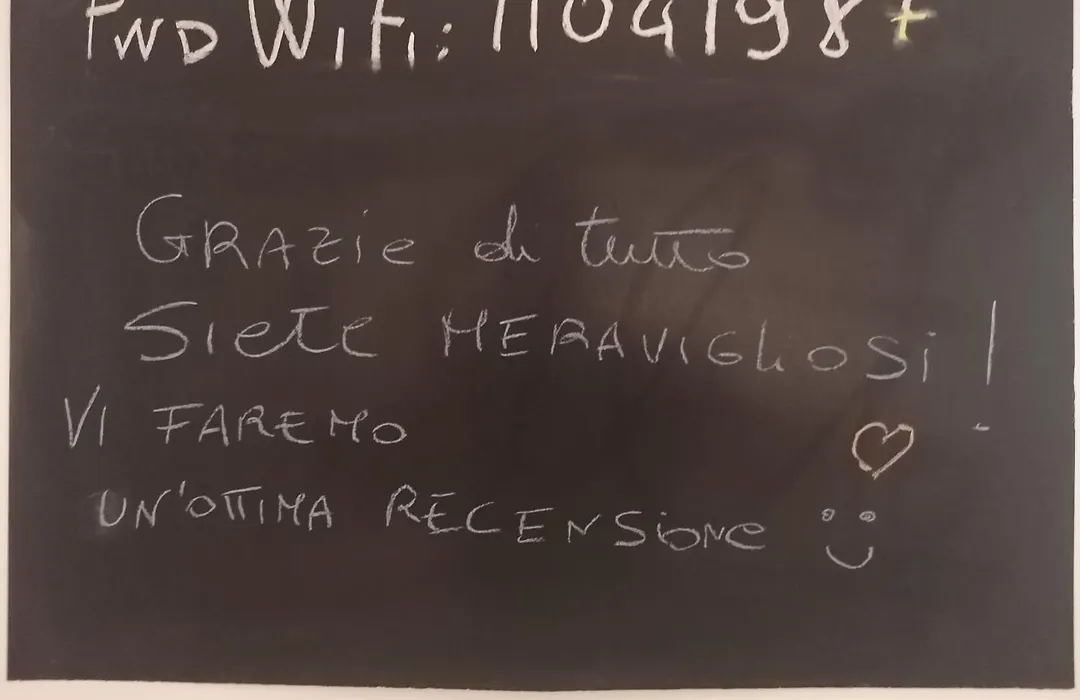 PWD WiFi: 1104198+
GRAZie di tutto
Siete MERAVIGLiOSi!
VI FAREMO
UN'OTTIMA RECENSiONe